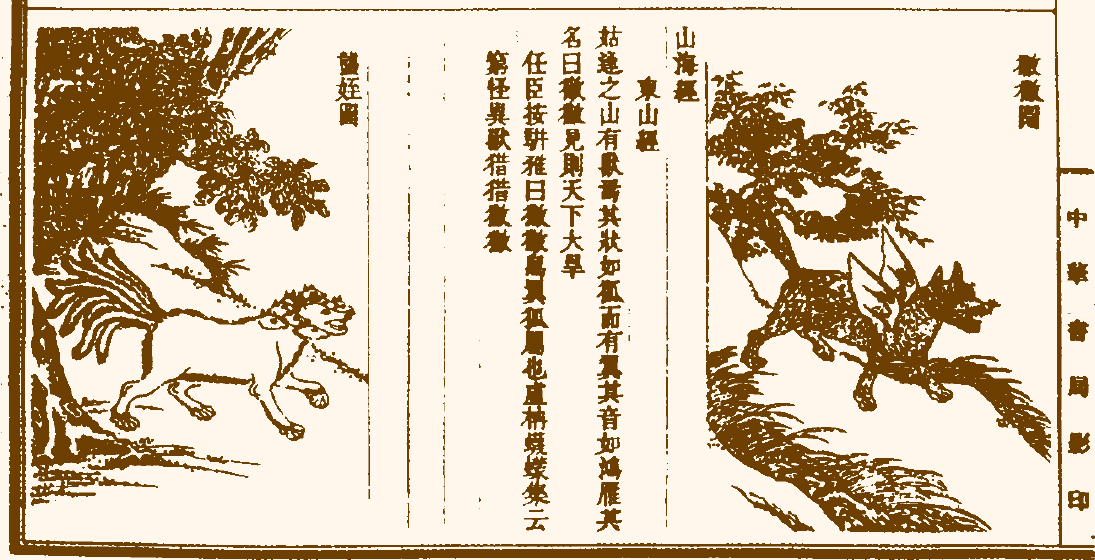 中華書局影印
獙獙圖
山海經
東山經
姑逢之山有獸焉其狀如狐而有翼其音如鴻雁其
名曰獙獙見則天下大旱
任臣按駢雅曰獙獙異狐屬也盧柟蠛蠓集云
窮怪異獸猎猎獙獙
蠪姪圖